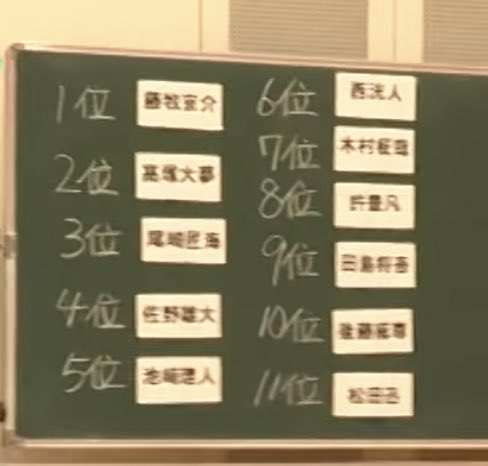 1位 藤牧京介
2位 高塚大夢
3位 尾崎匠海
4位 佐野雄大
5位 池﨑理人
6位 西洸人
7位 木村柾哉
8位 許豊凡
9位 田島将吾
10位 後藤威尊
11位 松田迅